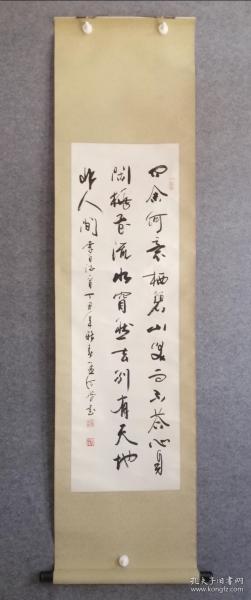 问余何意栖碧山笑而不答心自
闲桃花流水窅然去别有天地
非人间 李白诗一首 丁丑年
孔夫子旧书网